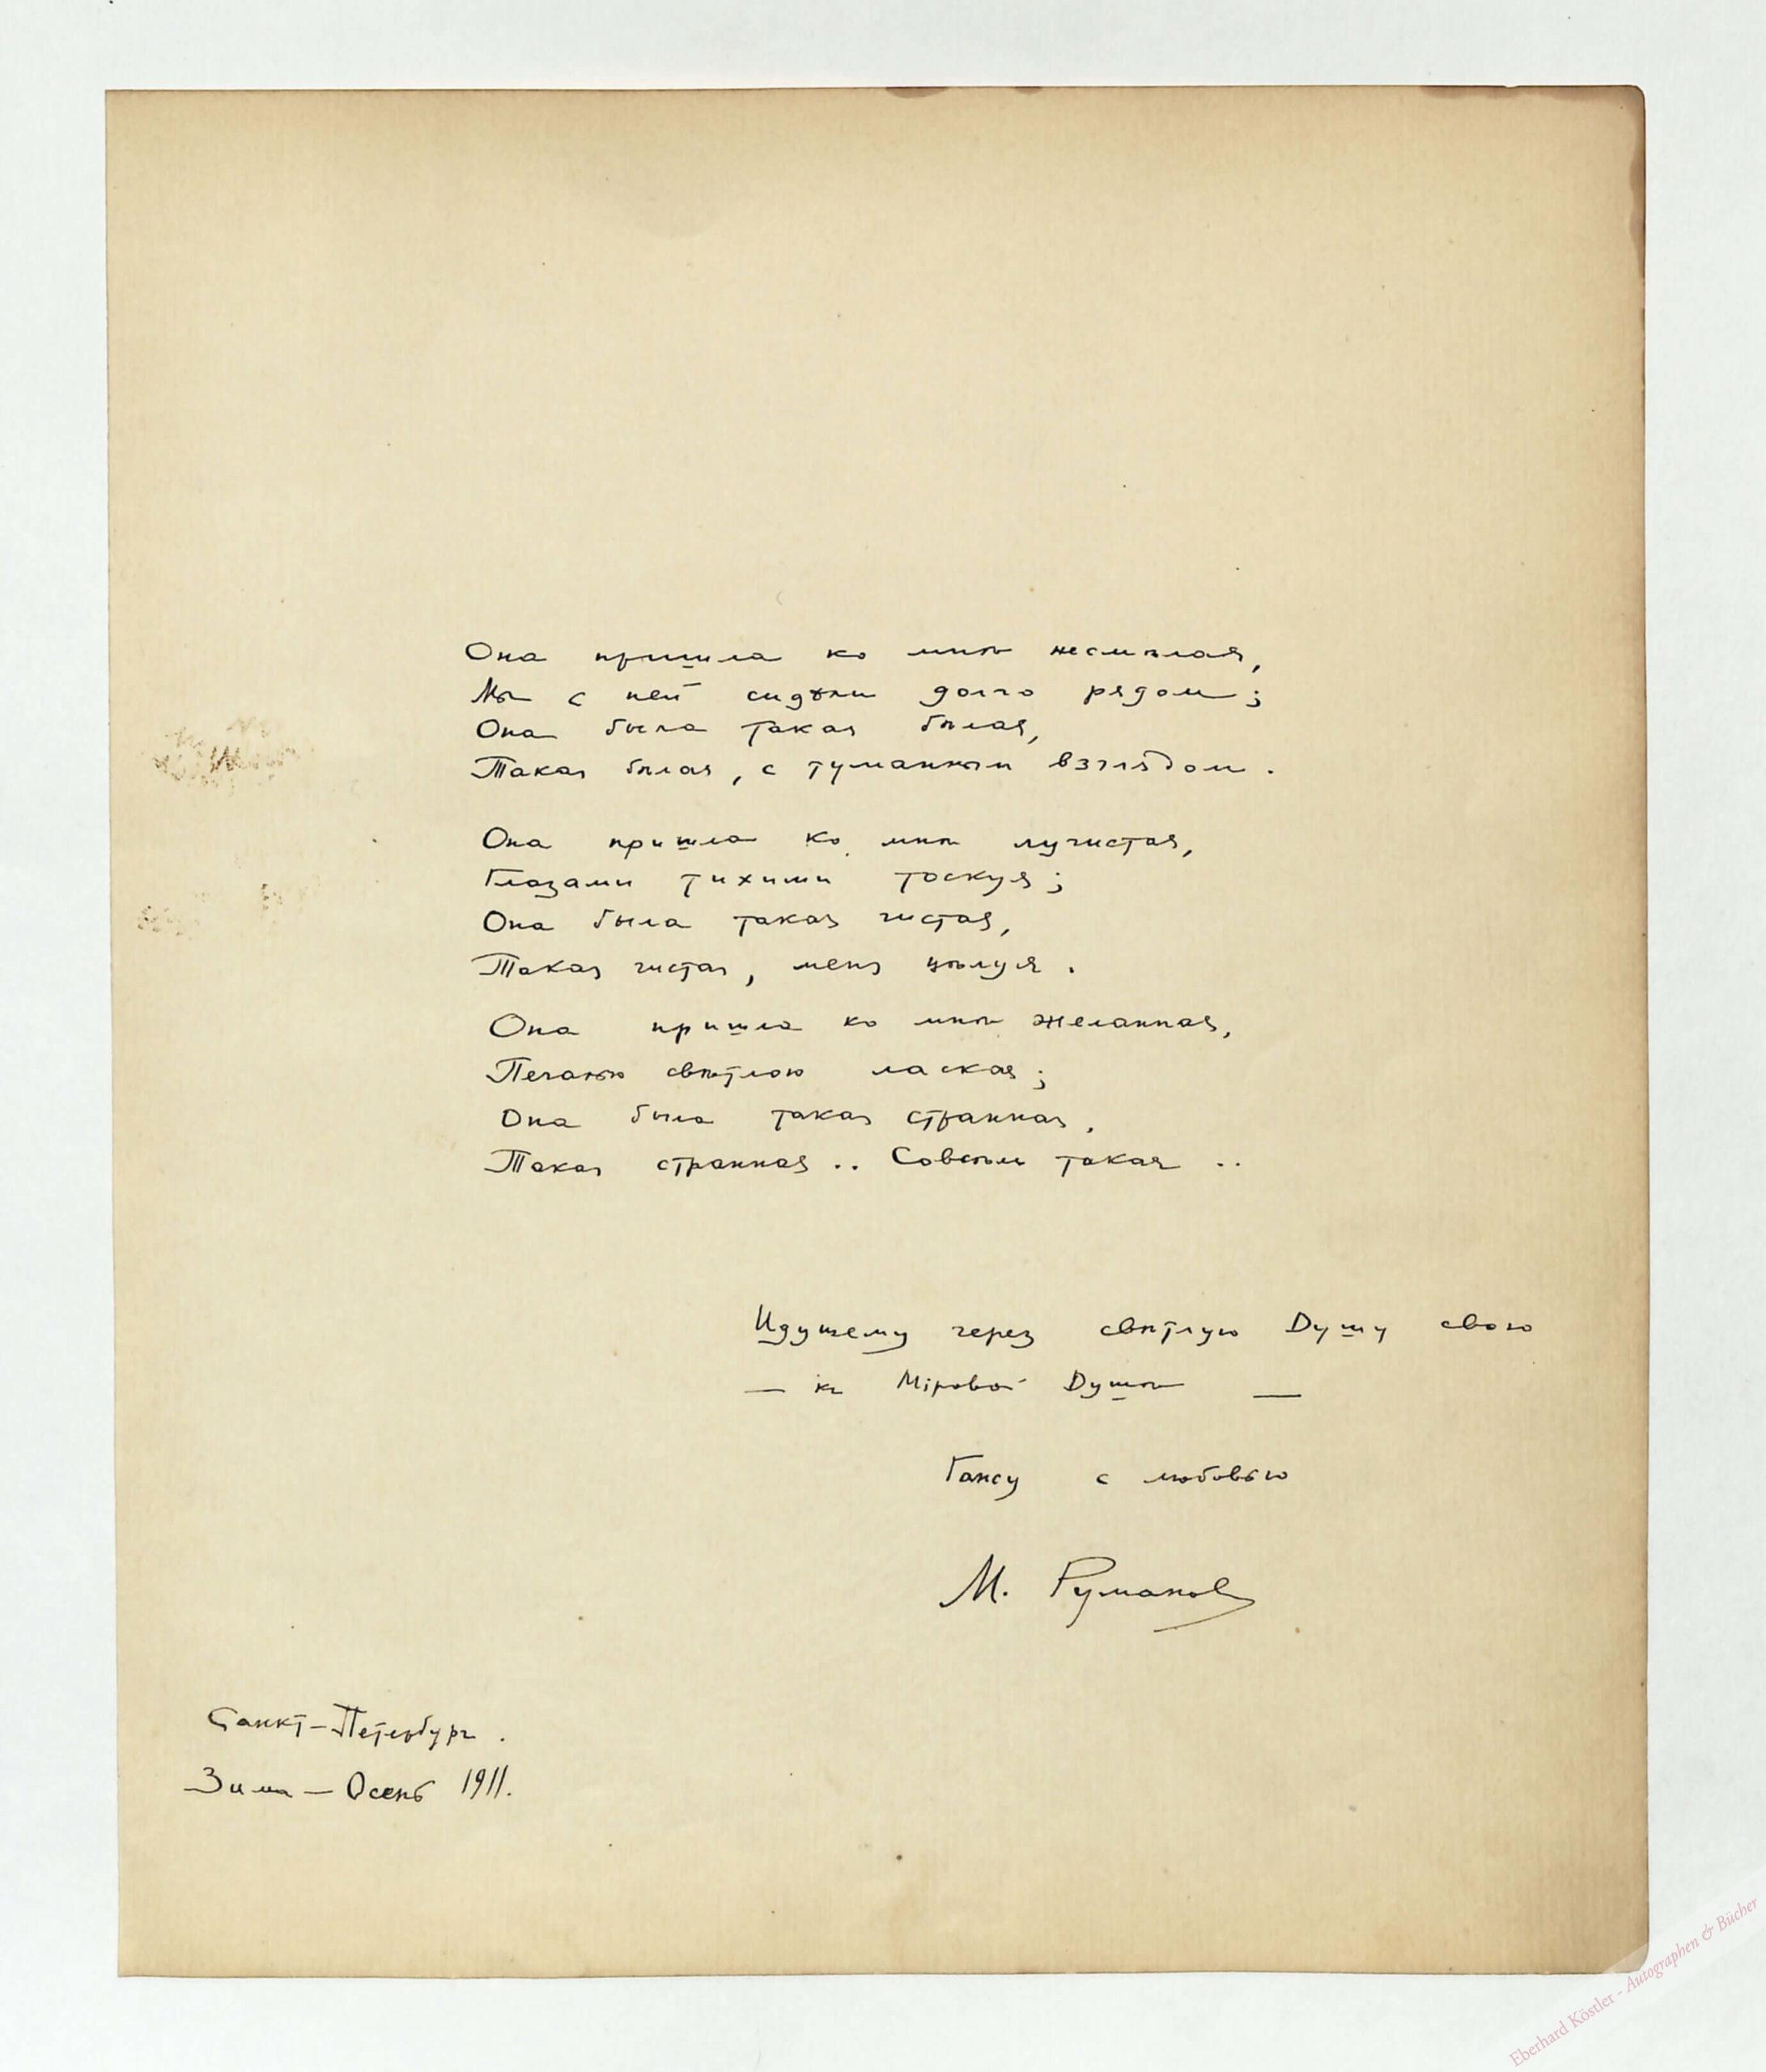 Она пришла ко мнѣ несмѣлая,
Мы с ней сидѣли долго рядом;
Она была такая бѣлая,
Такая бѣлая, с туманным взглядом.
Она пришла ко мнѣ лучистая,
Глазами тихими тоскуя;
Она была такая чистая,
Такая чистая, меня цѣлуя.
Она пришла ко мнѣ желанная,
Печалью свѣтлою лаская;
Она была такая странная,
Такая странная.. Совсѣм такая ..
Идущему через свѣтлую Душу свою
— к Міровой Душѣ —
Гансу с любовью
М. Руманов
Санкт-Петербург.
Зима — Осень 1911.
Eberhard Köstler - Autographen & Bücher